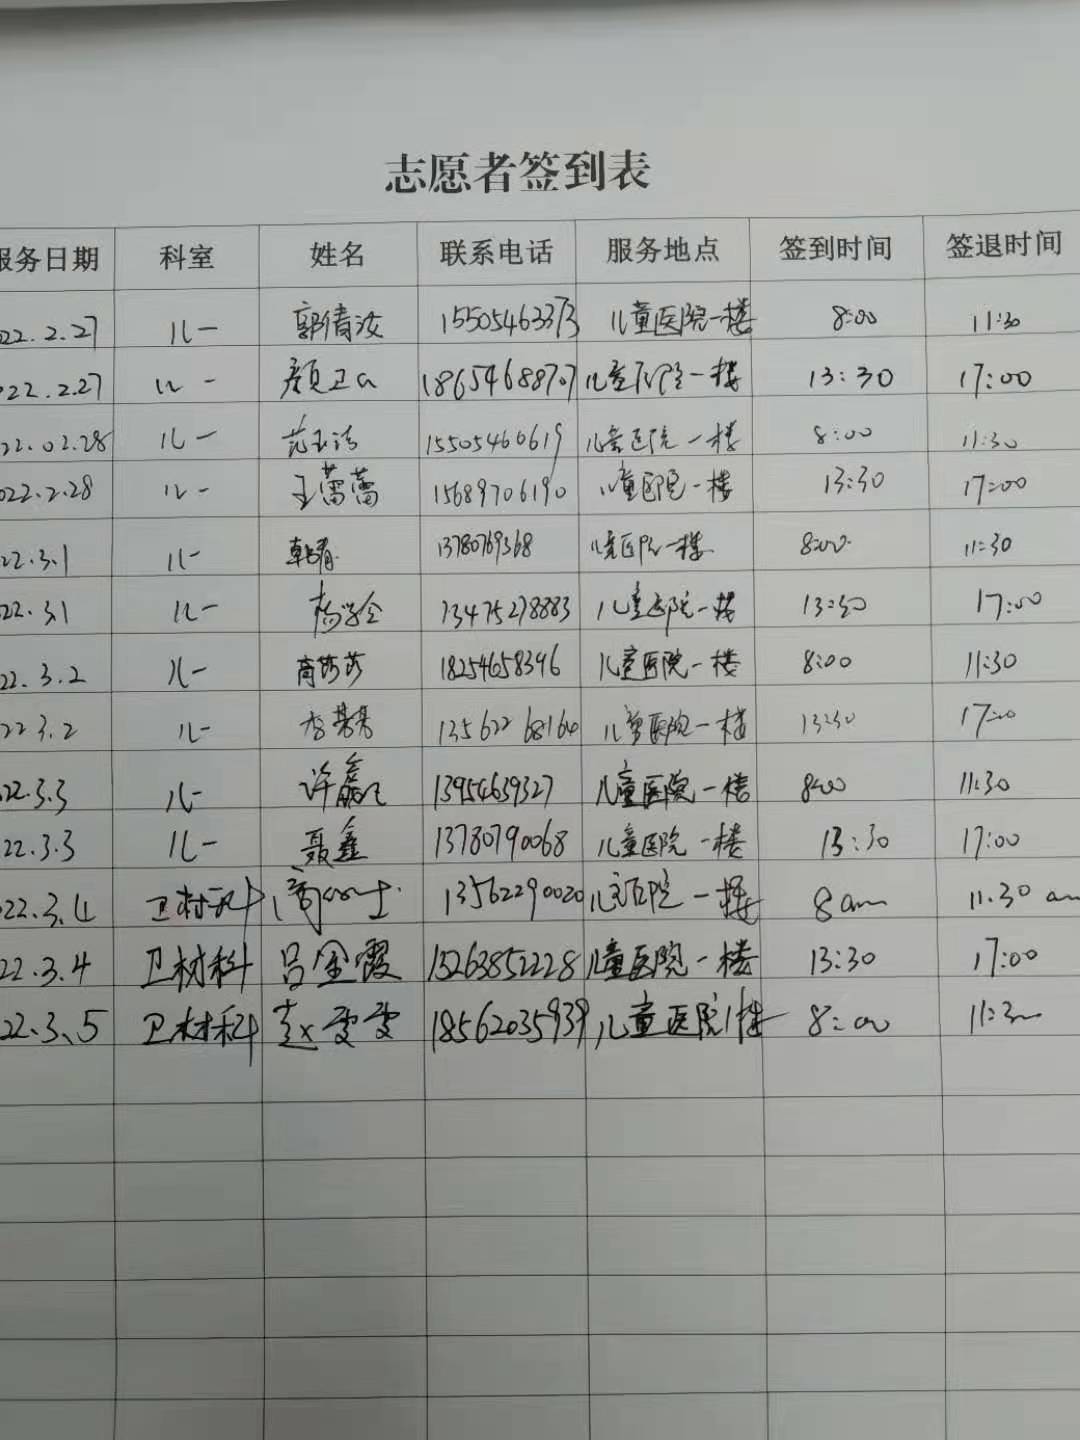 志愿者签到表
服务日期 科室 姓名 联系电话 服务地点 签到时间 签退时间
022.2.27 儿一 郭倩汝 15505463373 儿童医院一楼 8:00 11:30
022.2.27 儿一 颜卫 18654688707 儿童医院一楼 13:30 17:00
22.02.28 儿一 范玉洁 15505460619 儿童医院一楼 8:00 11:30
022.2.28 儿一 王蕾蕾 15689706190 儿童医院一楼 13:30 17:00
22.3.1 儿一 韩春 13780769368 儿童医院一楼 8:00 11:30
022.3.1 儿一 杨学会 13475278883 儿童医院一楼 13:30 17:00
22.3.2 儿一 商莎莎 18254658396 儿童医院一楼 8:00 11:30
22 3.2 儿一 李 13562268164 儿童医院一楼 13:30 17:00
022.3.3 儿一 许 13954639327 儿童医院一楼 8:00 11:30
22.3.3 儿一 聂鑫 13780790068 儿童医院一楼 13:30 17:00
022.3.4 卫材科 13562290020 儿童医院一楼 8am 11.30 am
22.3.4 卫材科 吕金霞 15263852228 儿童医院一楼 13:30 17:00
22.3.5 卫材科 赵雯雯 18562035939 儿童医院1楼 8:00 11:30